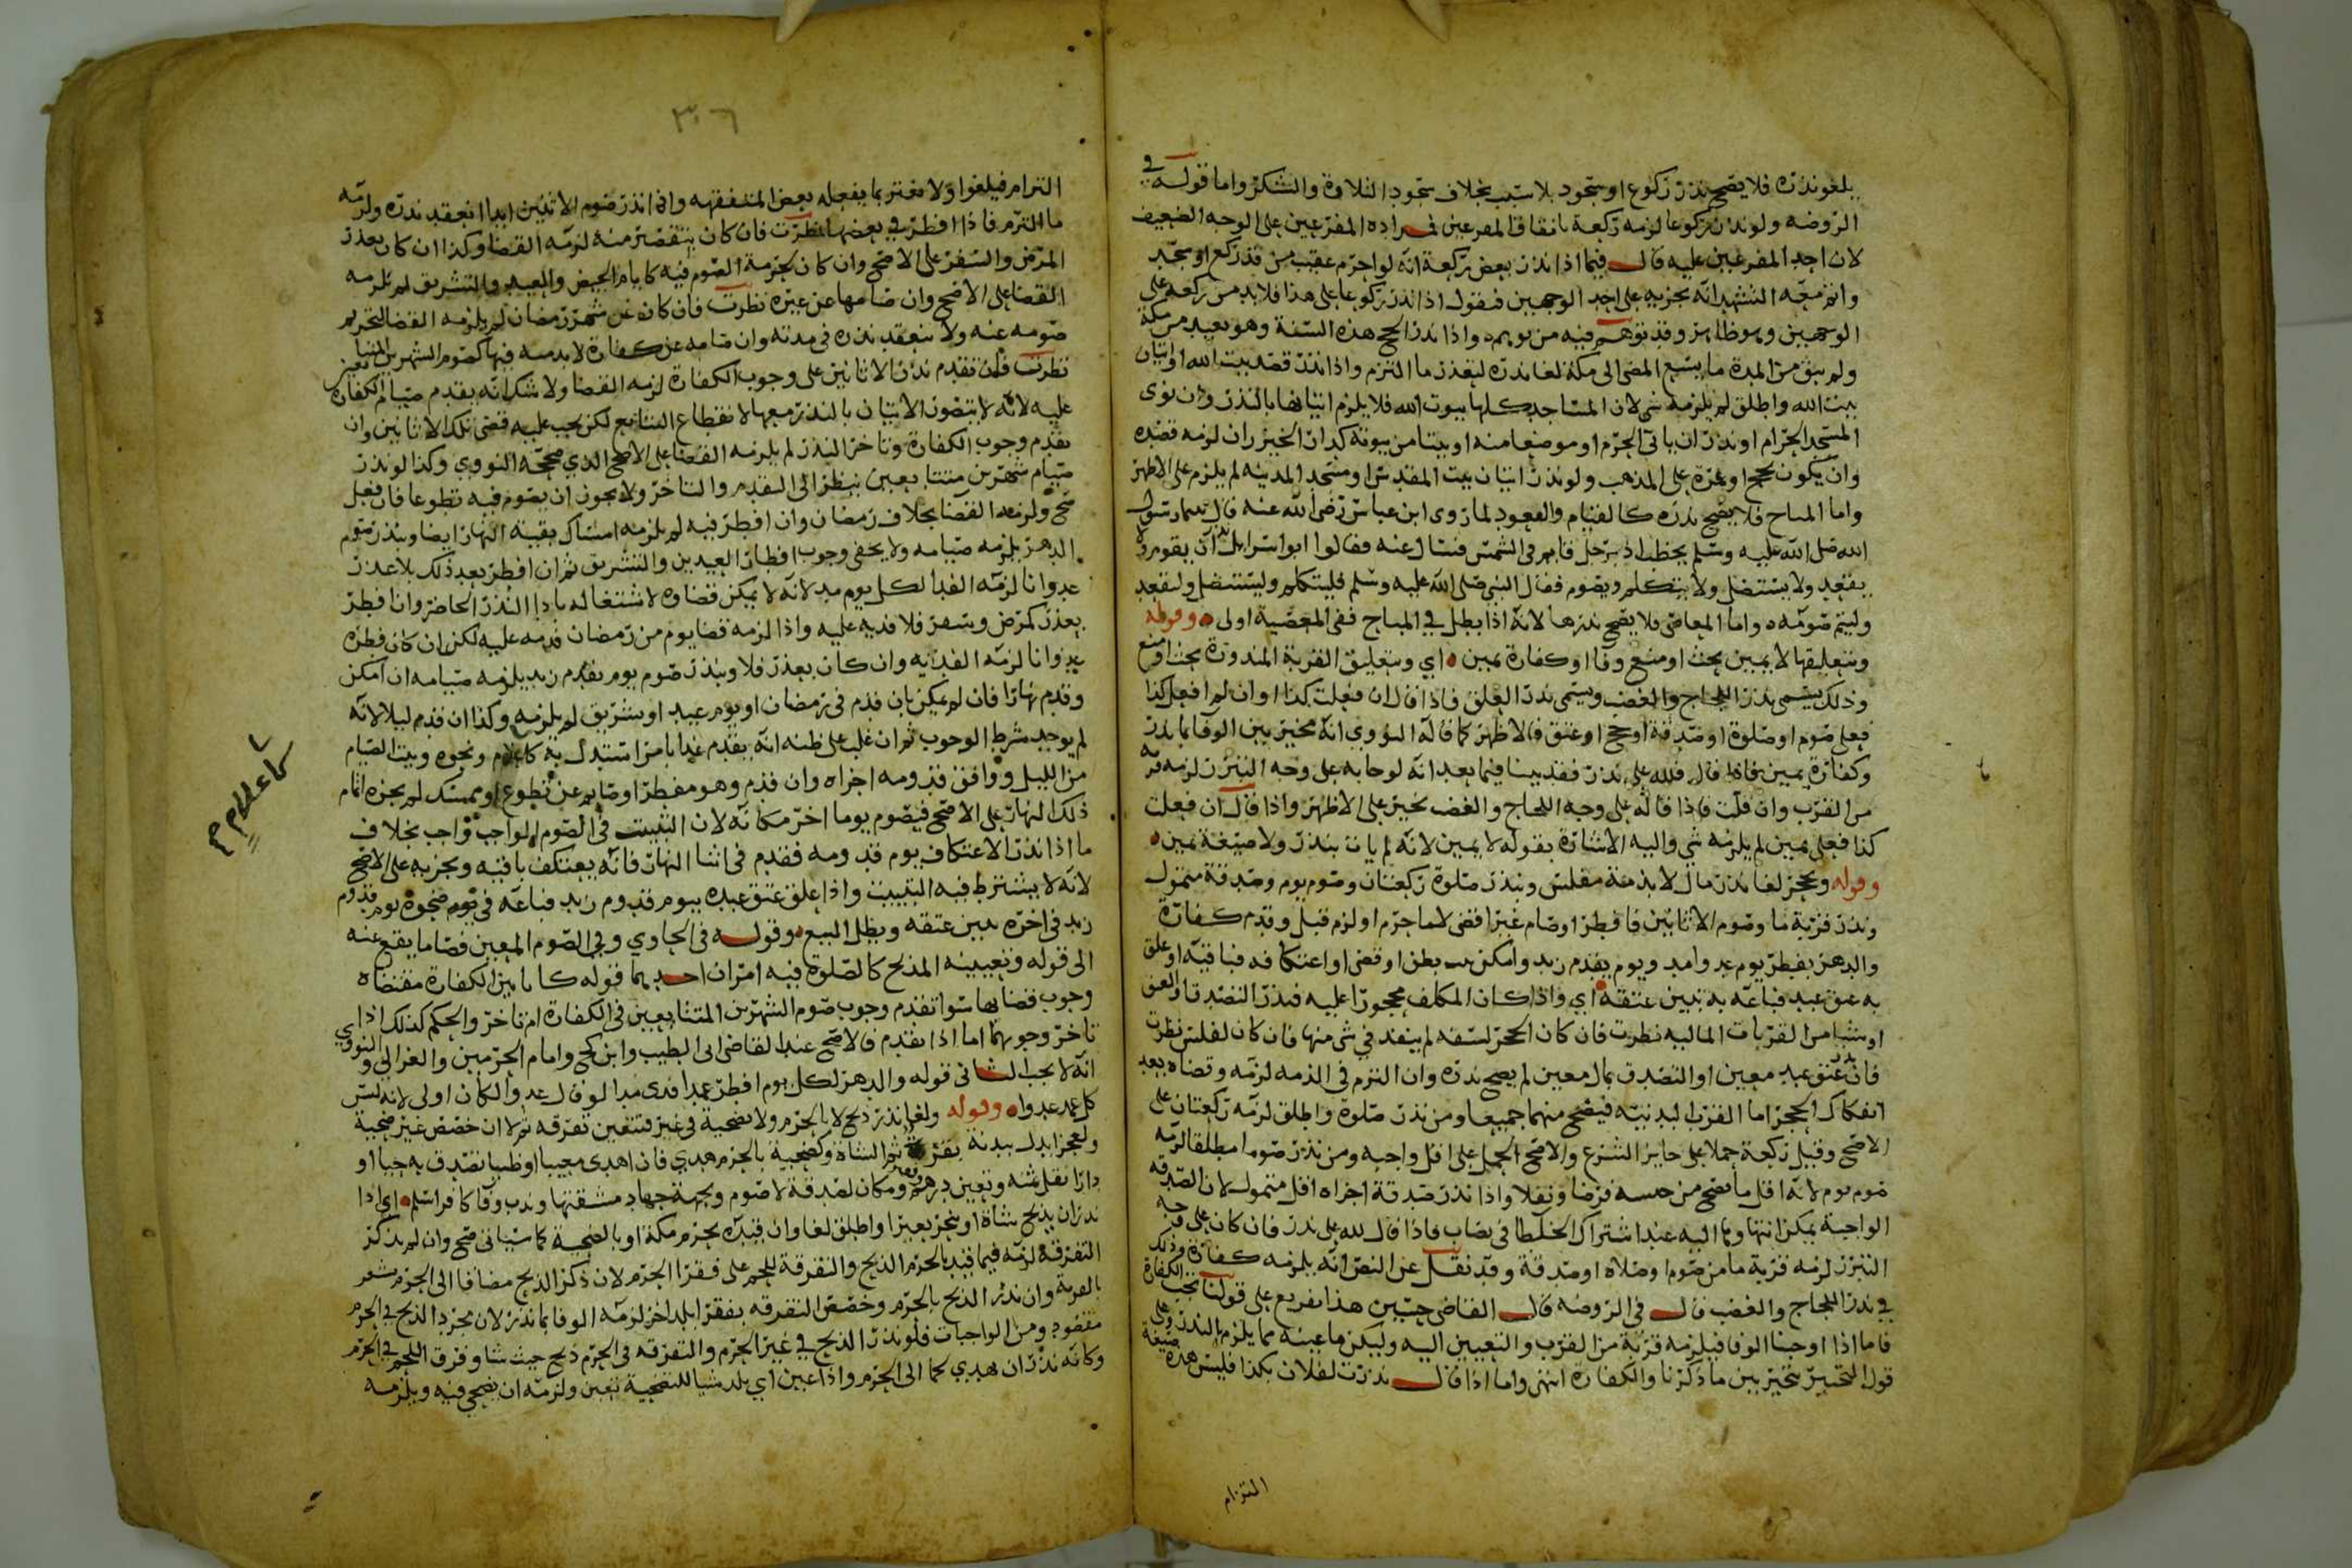 يلغو نذره فلا يصح نذر ركوع او سجود بلا سبب بخلاف سجود التلاوة والشكر واما قوله في
الروضه ولو نذر ركوعا لزمه ركعة باتفاق المفرعين فمراده المفرعين على الوجه الضعيف
لان احد المفرعين عليه قال فيما اذا نذر بعض ركعة انه لو احرم عقيب من قد ركع او سجد
واتم معه التشهد انه يجزيه على احد الوجهين فنقول اذا نذر ركوعا على هذا فلا بد من ركعه على
الوجهين وهو ظاهر وقد توهم فيه من يوهم واذا نذر الحج هذه السنة وهو بعيد من مكة
ولم يبق من المدة ما يسع المضي الى مكة لغا نذره لتعذر ما التزم واذا نذر قصد بيت الله او اتيان
بيت الله واطلق لم يلزمه شي لان المساجد كلها بيوت الله فلا يلزم اتيانها بالنذر وان نوى
المسجد الحرام او نذر ان ياتي الحرم او موضعا منه او بيتا من بيوته كدار الخيزران لزمه قصده
وان يكون بحج او عمرة على المذهب ولو نذر اتيان بيت المقدس او مسجد المدينه لم يلزم على الاظهر
واما المباح فلا يصح نذره كالقيام والقعود لما روى ابن عباس رضي الله عنه قال بينما رسول
الله صلى الله عليه وسلم يخطب اذ برجل قايم في الشمس فسال عنه فقالوا ابو اسرايل نذر ان يقوم ولا
يقعد ولا يستظل ولا يتكلم ويصوم فقال النبي صلى الله عليه وسلم فليتكلم وليستظل وليقعد
وليتم صومه ه واما المعاصي فلا يصح نذرها لانه اذا بطل في المباح ففي المعصية اولى ه وقوله
وبتعليقها لا بيمين بحث او منع وفا او كفارة يمين ه اي وبتعليق القربة المنذورة بحث او منع
وذلك يسمى نذر اللجاج والغضب ويسمى نذر العلق فاذا قال ان فعلت كذا او ان لم افعل كذا
فعلي صوم او صلوة او صدقة او حج او عتق فالاظهر كما قاله النووي انه مخير بين الوفا بما نذر
وكفارة يمين فاذا قال فلله علي نذر فقد بينا فيما بعد انه لو جا به على وجه التبرر لزمه قربه
من القرب وان قلت فاذا قاله على وجه اللجاج والغضب تخير على الاظهر واذا قال ان فعلت
كذا فعلي يمين لم يلزمه شي واليه الاشارة بقوله لا يمين لانه لم يات بنذر ولا صيغة يمين ه
وقوله وبحجر لغا نذر مال لا بذمة مفلس وبنذر صلوة ركعتان وصوم يوم وصدقة متمول
ونذر قربة ما وصوم الاثانين فافطر او صام غيرا قضى لا ما حرم او لزم قبل وقدم كفارة
والدهر بفطر يوم عدوا مد ويوم يقدم زيد وامكن ببطن او قضى او اعتكافه فباقيه او علق
به عتق عبد فباعه به تبين عتقه اي واذا كان المكلف محجورا عليه فنذر التصدق او العتق
او شيا من القربات الماليه نظرت فان كان الحجر لسفه لم ينفذ في شي منها فان كان لفلس نظرت
فان نذر عتق عبد معين او التصدق بمال معين لم يصح نذره وان التزم في الذمه لزمه وقضاه بعد
انفكاك الحجر اما القرب البدنيه فيصح منهما جميعا ومن نذر صلوة واطلق لزمه ركعتان على
الاصح وقيل ركعة حملا على جايز الشرع والاصح الحمل على اقل واجبه ومن نذر صوما مطلقا لزمه
صوم يوم لانه اقل ما يصح من جنسه فرضا ونفلا واذا نذر صدقة اجزاه اقل متمول لان الصدقه
الواجبة يمكن انتهاوها اليه عند اشتراك الخلطا في نصاب فاذا قال لله علي نذر فان كان على وجه
التبرر لزمه قربة ما من صوم او صلاه او صدقة وقد نقل عن النص انه يلزمه كفارة وذلك
في نذر اللجاج والغضب قال في الروضه قال القاضي حسين هذا تفريع على قولنا تجب الكفارة
فاما اذا اوجبنا الوفا فيلزمه قربة من القرب والتعيين اليه وليكن ما عينه مما يلزم بالنذر وعلى
قول التخيير يتخير بين ما ذكرنا والكفارة انتهى واما اذا قال نذرت لفلان بكذا فليس هذه صيغة
التزام
٣٠٦
التزام فيلغوا ولا تغتر بما يفعله بعض المتفقهه واذا نذر صوم الاثنين ابدا انعقد نذره ولزمه
ما التزم فاذا افطر في بعضها نظرت فان كان بتقصير منه لزمه القضا وكذا ان كان بعذر
المرض والسفر على الاصح وان كان لحرمة الصوم فيه كايام الحيض والعيد والتشريق لم يلزمه
القضا على الاصح وان صامها عن غيره نظرت فان كان عن شهر رمضان لم يلزمه القضا لتحريم
صومه عنه ولا ينعقد نذره في مدته وان صامه عن كفارة لا بد منه فيها كصوم الشهرين المتتابعين
نظرت فان تقدم نذر الاثانين على وجوب الكفارة لزمه القضا ولا شك انه يقدم صيام الكفارة
عليه لانه لا يتصور الاتيان بالنذر معها لانقطاع التتابع لكن يجب عليه قضى تلك الاثانين وان
تقدم وجوب الكفارة وتاخر النذر لم يلزمه القضا على الاصح الذي صححه النووي وكذا لو نذر
صيام شهرين متتابعين ينظر الى التقدم والتاخر ولا يجوز ان يصوم فيه تطوعا فان فعل
صح ولزمه القضا بخلاف رمضان وان افطر فيه لم يلزمه امساك بقية النهار ايضا وبنذر صوم
الدهر يلزمه صيامه ولا يخفى وجوب افطار العيدين والتشريق ثم ان افطر بعد ذلك بلا عذر
عدوانا لزمه الفدا لكل يوم مد لانه لا يمكن قضاوه لاشتغاله بادا النذر الحاضر وان افطر
بعذر كمرض وسفر فلا فديه عليه واذا لزمه قضا يوم من رمضان قدمه عليه لكن ان كان فطره
عدوانا لزمه الفديه وان كان بعذر فلا وبنذر صوم يوم يقدم زيد يلزمه صيامه ان امكن
وقدم نهارا فان لم يمكن بان قدم في رمضان او يوم عيد او تشريق لم يلزمه وكذا ان قدم ليلا لانه
لم يوجد شرط الوجوب ثم ان غلب على ظنه انه يقدم غدا بامر استدل به كاعلام ونحوه وبيت الصيام
من الليل ووافق قدومه اجزاه وان قدم وهو مفطر او صايم عن تطوع او ممسك لم يجزه اتمام
ذلك النهار على الاصح فيصوم يوما اخر مكانه لان التبييت في الصوم الواجب واجب بخلاف
ما اذا نذر الاعتكاف يوم قدومه فقدم في اثنا النهار فانه يعتكف باقيه ويجزيه على الاصح
لانه لا يشترط فيه التبييت واذا علق عتق عبده بيوم قدوم زيد فباعه في يوم ضحوة يوم قدوم
زيد في اخره تبين عتقه وبطل البيع ه وقوله في الحاوي وفي الصوم المعين قضا ما يقع عنه
الى قوله وتعيينه المذبح كالصلوة فيه امران احدهما قوله كاثانين الكفارة مقتضاه
وجوب قضايها سوا تقدم وجوب صوم الشهرين المتتابعين في الكفارة ام تاخر والحكم كذلك اذا
تاخر وجوبهما اما اذا تقدم فالاصح عند القاضي ابي الطيب وابن كج وامام الحرمين والغزالي والنووي
انه لا يجب الثاني قوله والدهر لكل يوم افطر عمدا فدى مدا لو قال عدوا لكان اولى لانه ليس
كل عمد عدوا ه وقوله ولغا نذر ذبح لا بالحرم ولا بضحية في غير فتتعين تفرقه ثم لا ان خصص غير ضحية
ولعجز ابدل ببدنة بقرة ثم الشاة وكضحية بالحرم هدي فان اهدى معيبا او ظبيا تصدق به حيا او
دارا نقل ثمنه وتعين درهم ومكان لصدقة لا صوم وبجهة جهاد مشقتها وندب وفا كافر اسلم ه اي اذا
نذر ان يذبح شاة او ينحر بعيرا واطلق لغا وان قيده بحرم مكة او بالضحية كما سياتي صح وان لم يذكر
التفرقه لزمه فيما قيد بالحرم الذبح والتفرقة للحم على فقرا الحرم لان ذكر الذبح مضافا الى الحرم يشعر
بالقربة وان نذر الذبح بالحرم وخصص التفرقه بفقرا بلد اخر لزمه الوفا بما نذر لان مجرد الذبح في الحرم
مقصود ومن الواجبات فلو نذر الذبح في غير الحرم والتفرقه في الحرم ذبح حيث شا وفرق اللحم في الحرم
وكانه نذر ان يهدي لحما الى الحرم واذا عين اي بلد شيا للتضحية تعين ولزمه ان يضحي فيه ويلزمه
كاعلام